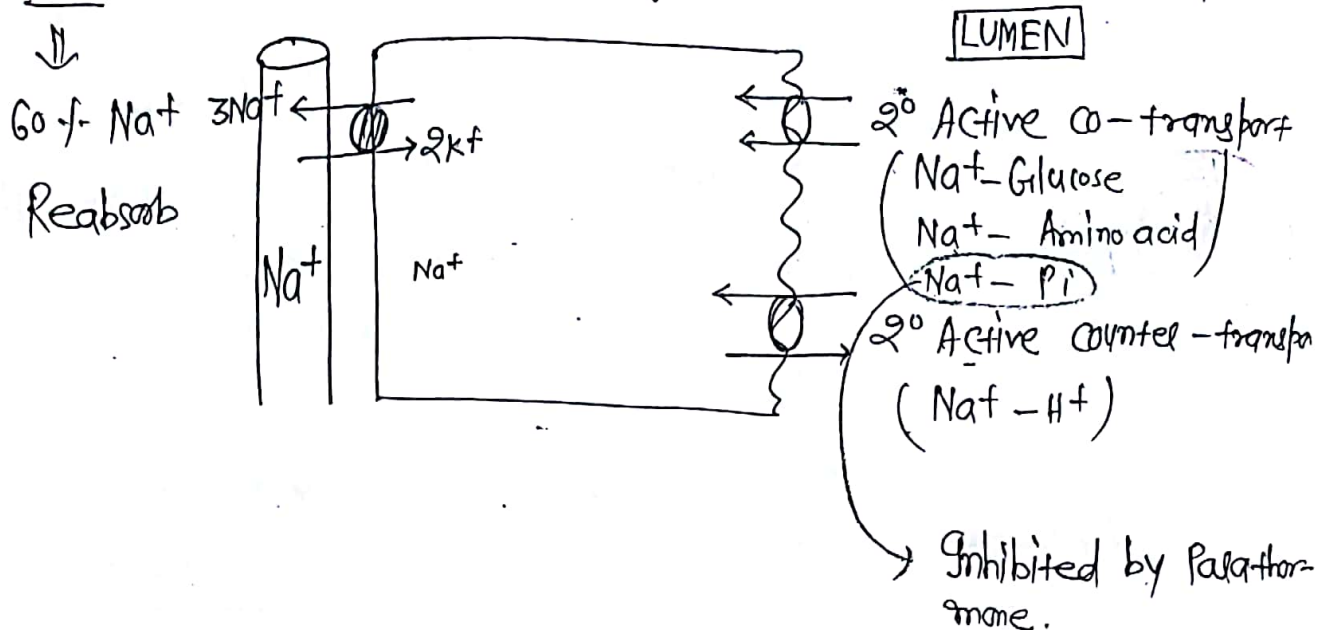 LUMEN
60 % Na+ Reabsorb
3Na+
2K+
Na+
Na+
2° Active co-transport
(Na+-Glucose
Na+- Amino acid)
Na+- Pi
2° Active counter-transpo
(Na+-H+)
Inhibited by Parathor-
mone.